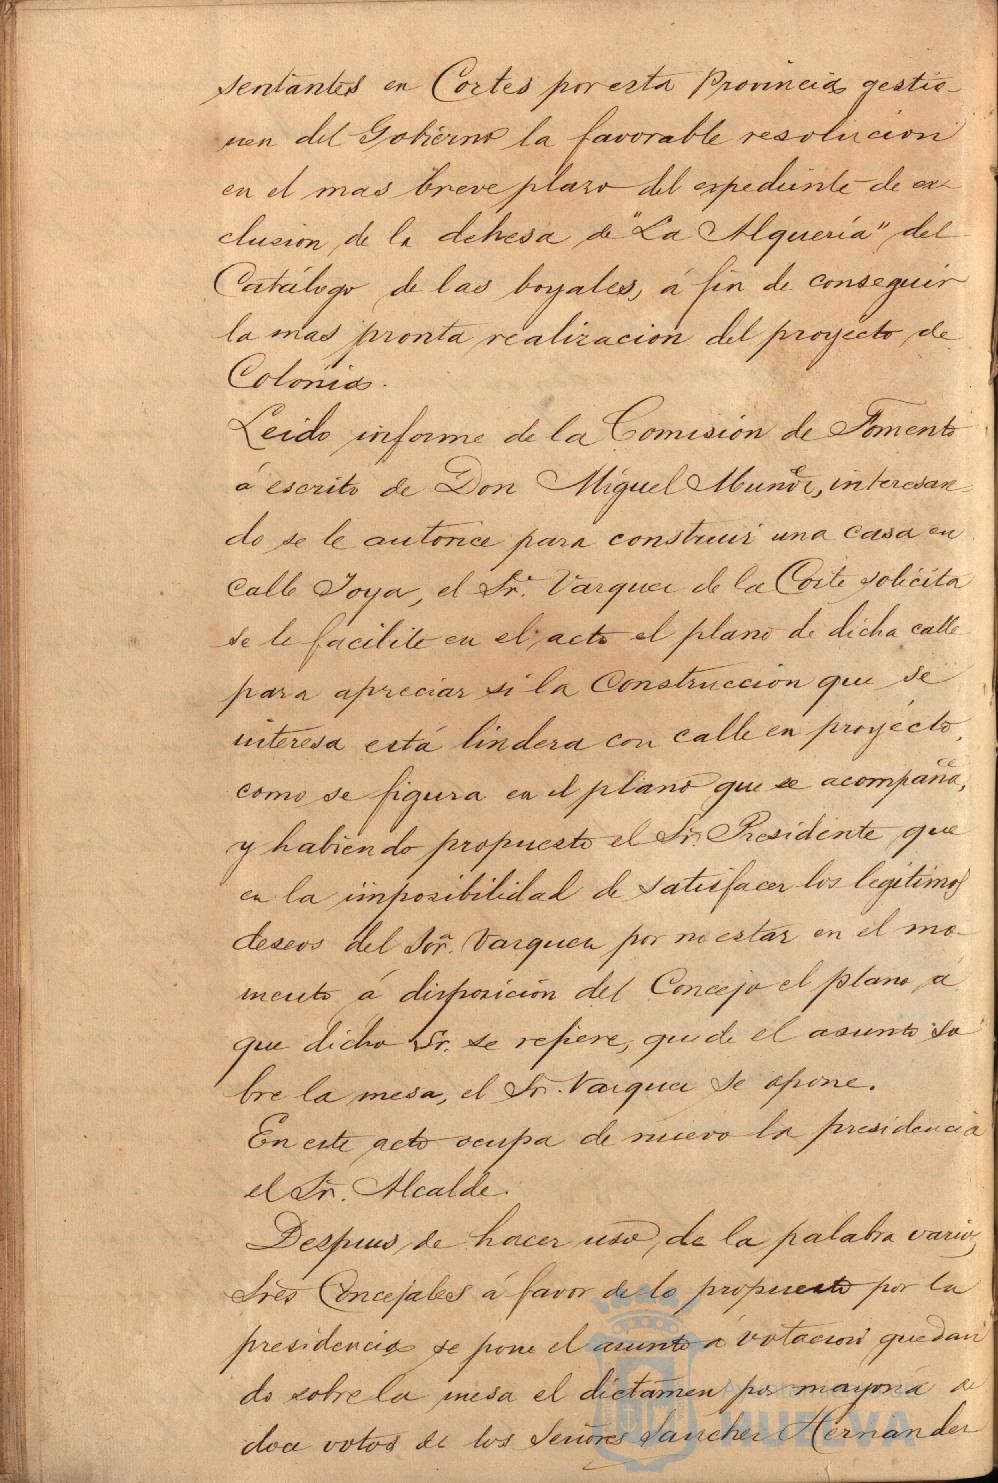 sentantes en Cortes por esta Provincia gestio-
nen del Gobierno la favorable resolucion
en el mas breve plazo del expediente de ex-
clusion de la dehesa de "La Alquería" del
Catálogo de las boyales, á fin de conseguir
la mas pronta realizacion del proyecto de
Colonia.
Leido informe de la Comisión de Fomento
á escrito de Don Miguel Muñoz, interesan-
do se le autorice para construir una casa en
calle Joya, el Sr. Vazquez de la Corte solicita
se le facilite en el acto el plano de dicha calle
para apreciar si la Construccion que se
interesa está lindera con calle en proyecto,
como se figura en el plano que se acompaña,
y habiendo propuesto el Sr. Presidente que
en la imposibilidad de satisfacer los legitimos
deseos del Sor. Vazquez por no estar en el mo-
mento á disposición del Concejo el plano á
que dicho Sr. se refiere, quede el asunto so
bre la mesa, el Sr. Vazquez se opone.
En este acto ocupa de nuevo la presidencia
el Sr. Alcalde.
Despues de hacer uso de la palabra varios
Sres Concejales á favor de lo propuesto por la
presidencia se pone el asunto á votacion quedan
do sobre la mesa el dictamen por mayoria de
doce votos de los Señores Sanchez Hernandez
HUELVA